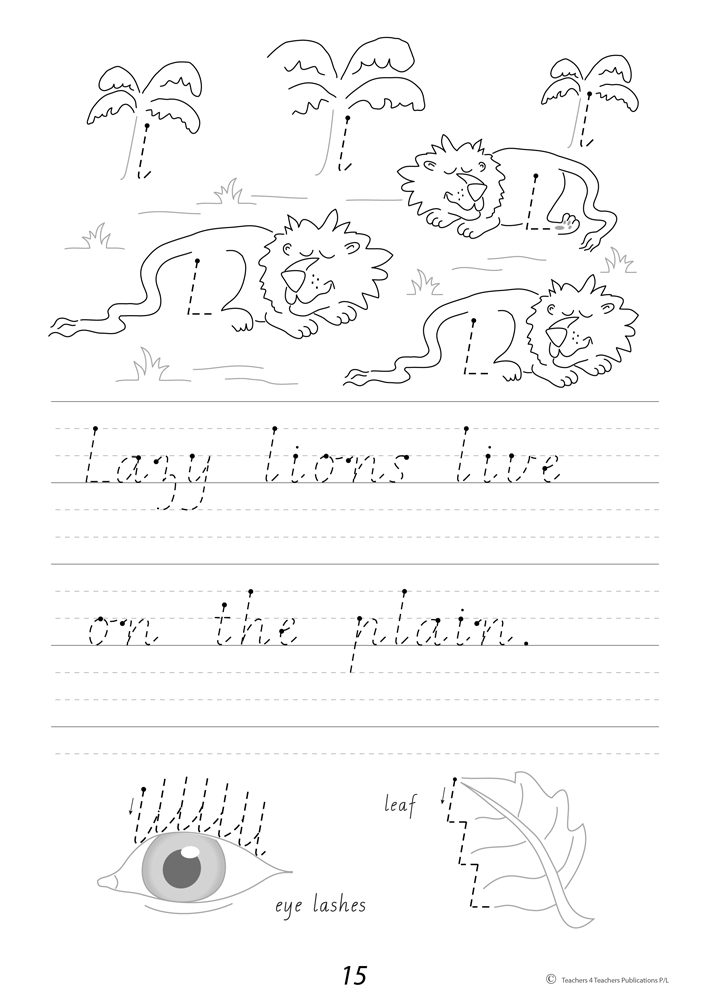 Lazy lions live
on the plain.
leaf
eye lashes
15
© Teachers 4 Teachers Publications P/L